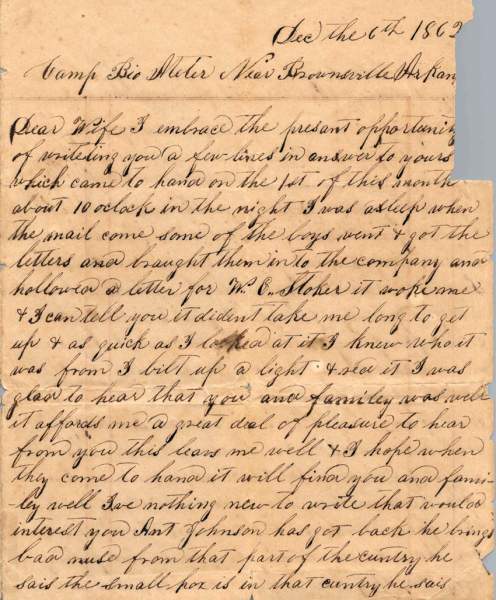 Dec the 6th 1862
Camp Bio Meter Near Brownsville Arkan
Dear Wife I embrace the present opportunity
of writeing you a few lines in answer to yours
which came to hand on the 1st of this month
about 10 oclock in the night I was asleep when
the mail come some of the boys went & got the
letters and braught them in to the company and
hollowed a letter for Wm E. Stoker it woke me
& I can tell you it dident take me long to get
up & as quick as I looked at it I knew who it
was from I bilt up a light & read it I was
glad to hear that you and familey was well
it affords me a great deal of pleasure to hear
from you this leavs me well & I hope when
they come to hand it will find you and fami-
ley well I've nothing new to write that would
interest you Ant Johnson has got back he brings
bad nuse from that part of the cuntry he
sais the small pox is in that cuntry he sais